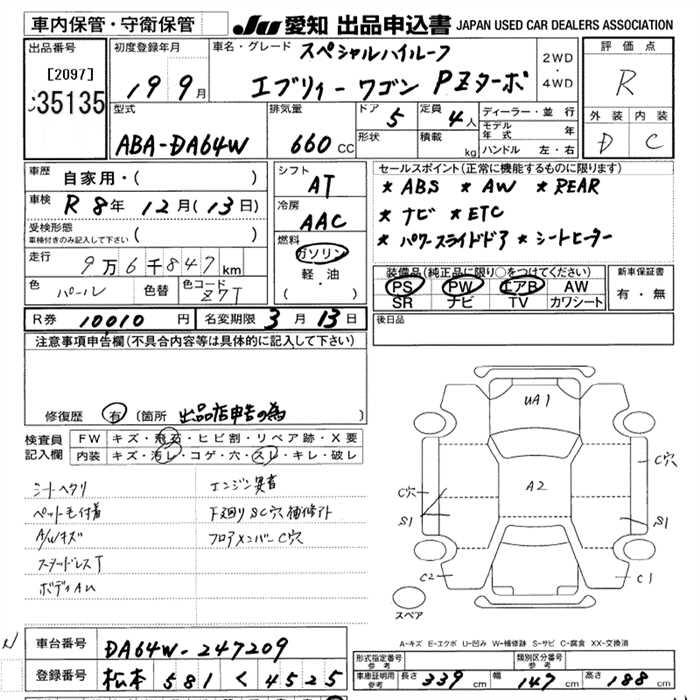 車内保管・守衛保管
JU 愛知 出品申込書 JAPAN USED CAR DEALERS ASSOCIATION
出品番号
[2097]
35135
初度登録年月
19 9月
車名・グレード スペシャルハイルーフ
エブリィーワゴン PZターボ
2WD
・
4WD
評価点
R
外装 内装
D C
型式
ABA-DA64W
排気量
660 CC
ドア 5
定員 4人
形状
積載 kg
ディーラー・並行
モデル年式 年
ハンドル 左・右
車歴
自家用・( )
車検 R 8年 12月(13日)
受検形態
車検付きのみ記入して下さい ( )
走行 9万6千847km
色 パール 色替 色コード Z7T
シフト
AT
冷房
AAC
燃料
ガソリン
軽・油
( )
セールスポイント(正常に機能するものに限ります)
* ABS * AW * REAR
* ナビ * ETC
* パワースライドドア * シートヒーター
装備品(純正品に限り○をつけてください)
PS PW エアB AW
SR ナビ TV カワシート
新車保証書
有・無
R券 10010 円 名変期限 3月13日
後日品
注意事項申告欄(不具合内容等は具体的に記入して下さい)
修復歴 有 (箇所 出品店申告の為 )
検査員記入欄
FW キズ・飛石・ヒビ割・リペア跡・X要
内装 キズ・汚レ・コゲ・穴・スレ・キレ・破レ
シートヘタリ
ペット毛付着
A/Wキズ
スタッドレスT
ボディAU
エンジン異音
下廻りSC穴補修アト
フロアメンバーC穴
UA1
A2
C穴
C穴
S1
S1
C2
C1
スペア
A-キズ E-エクボ U-凹み W-補修跡 S-サビ C-腐食 XX-交換済
車台番号 DA64W-247209
登録番号 松本 581 く 4525
型式指定番号 参考
類別区分番号 参考
車庫証明用 参考 長さ 339 cm 幅 147 cm 高さ 188 cm